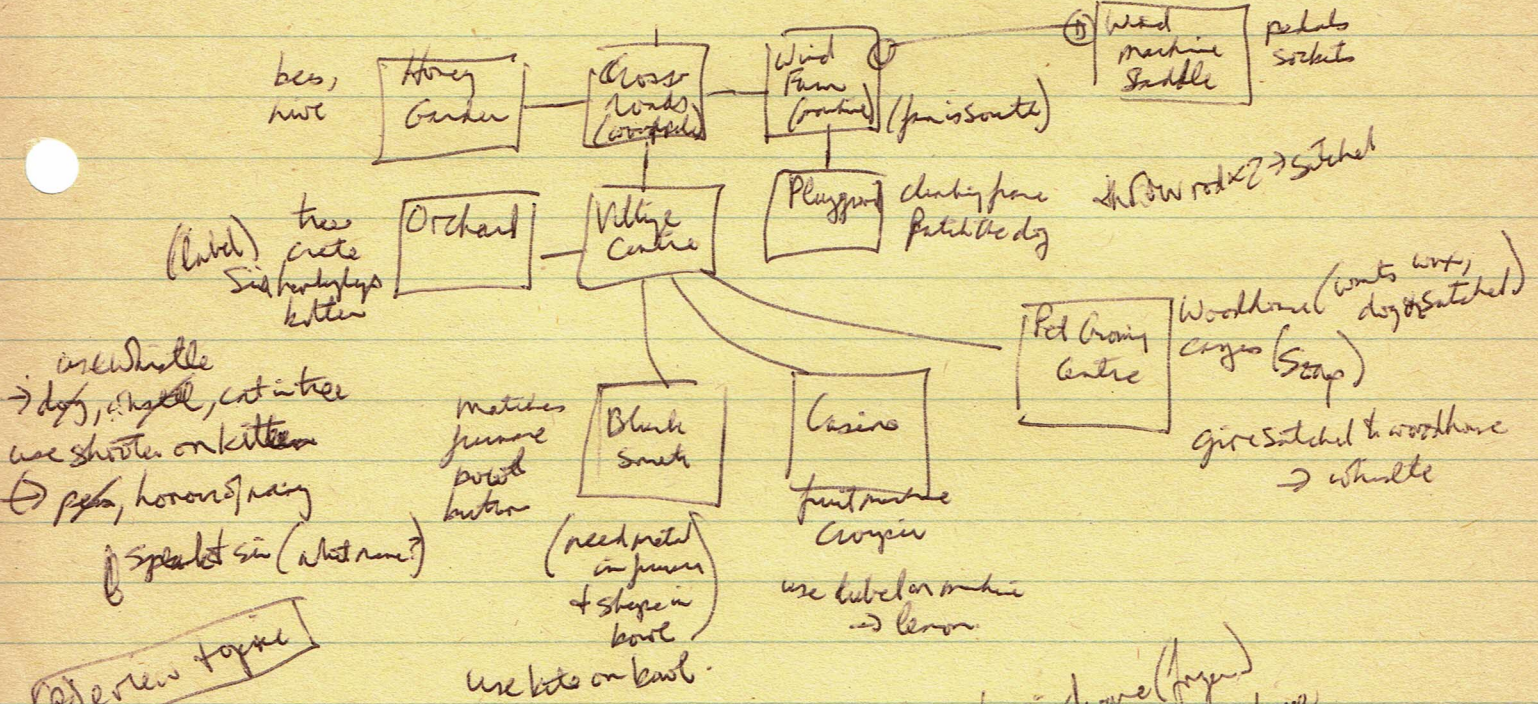 bees,
hive
Honey
Garden
Cross
roads
Wind
Farm
(machine)
(fan is south)
U
D
Wind
machine
Saddle
pedals
sockets
(label)
tree
crate
kitten
Orchard
Village
Centre
Playground
climbing frame
Patch the dog
throw rod x2 → satchel
Pet
Centre
Woodhouse (wants wax,
dog satchel)
cages (soap)
give satchel to woodhouse
→ whistle
use whistle
→ dog, cat in tree
use shooter on kitten
→ honour of
speak to Sir (what name?)
matches
furnace
bowl
button
Black
Smith
(need metal
in furnace
+ shape in
bowl)
use kite on bowl.
Casino
fruit machine
Croupier
use label on machine
→ lemon
Review topic